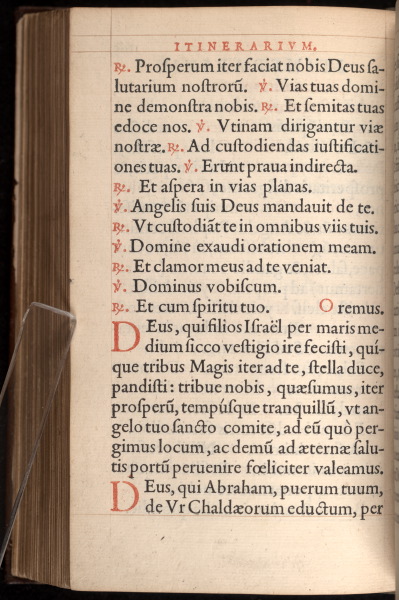 ITINERARIVM.
℟. Proſperum iter faciat nobis Deus ſa-
lutarium noſtrorū. ℣. Vias tuas domi-
ne demonſtra nobis. ℟. Et ſemitas tuas
edoce nos. ℣. Vtinam dirigantur viæ
noſtræ. ℟. Ad cuſtodiendas iuſtificati-
ones tuas. ℣. Erunt praua in directa.
℟. Et aſpera in vias planas.
℣. Angelis ſuis Deus mandauit de te.
℟. Vt cuſtodiāt te in omnibus viis tuis.
℣. Domine exaudi orationem meam.
℟. Et clamor meus ad te veniat.
℣. Dominus vobiſcum.
℟. Et cum ſpiritu tuo. Oremus.
DEus, qui filios Iſraël per maris me-
dium ſicco veſtigio ire feciſti, quí-
que tribus Magis iter ad te, ſtella duce,
pandiſti: tribue nobis, quæſumus, iter
proſperū, tempúſque tranquillū, vt an-
gelo tuo ſancto comite, ad eū quò per-
gimus locum, ac demū ad æternæ ſalu-
tis portū peruenire fœliciter valeamus.
DEus, qui Abraham, puerum tuum,
de Vr Chaldæorum eductum, per